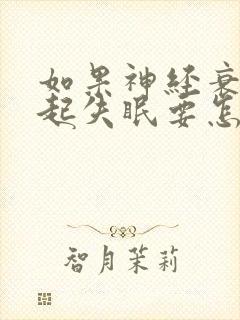 如果神经衰
起失眠要怎
智月茉莉